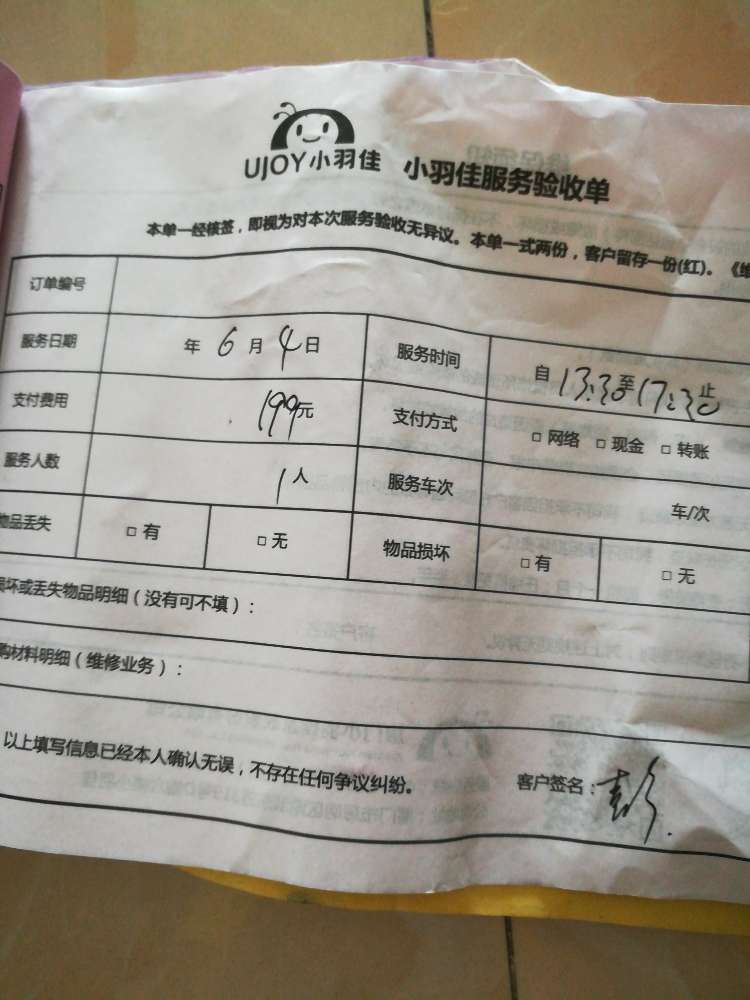 UJOY小羽佳 小羽佳服务验收单
本单一经核签，即视为对本次服务验收无异议。本单一式两份，客户留存一份(红)。《维
订单编号
服务日期 年 6 月 4 日 服务时间 自 13:30 至 17:30 止
支付费用 199元 支付方式 □ 网络 □ 现金 □ 转账
服务人数 1 人 服务车次 车/次
物品丢失 □ 有 □ 无 物品损坏 □ 有 □ 无
损坏或丢失物品明细（没有可不填）：
购材料明细（维修业务）：
以上填写信息已经本人确认无误，不存在任何争议纠纷。 客户签名：彭